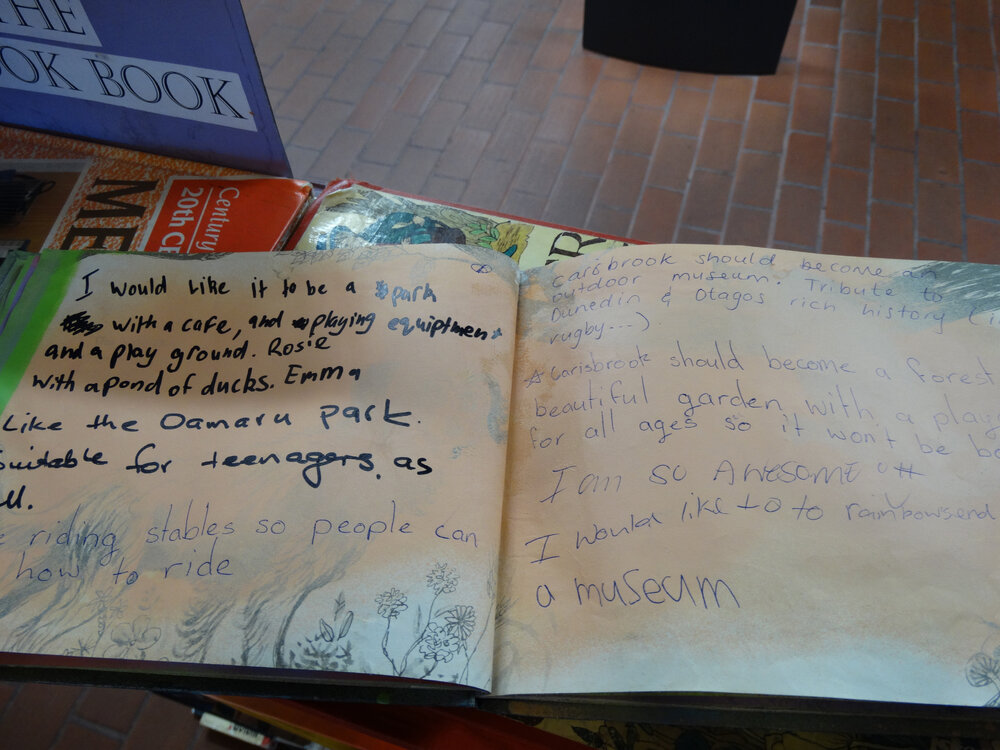 THE
OK BOOK
ME
Century
20th CE
I would like it to be a park
with a cafe, and playing equiptment
and a play ground. Rosie
with a pond of ducks. Emma
Like the Oamaru park.
Suitable for teenagers, as
riding stables so people can
how to ride
Carisbrook should become an
outdoor museum. Tribute to
Dunedin & Otagos rich history (i
rugby...)
Carisbrook should become a forest
beautiful garden, with a play
for all ages so it won't be bo
I am so Awesome
I would like to to rainbowsend
a museum